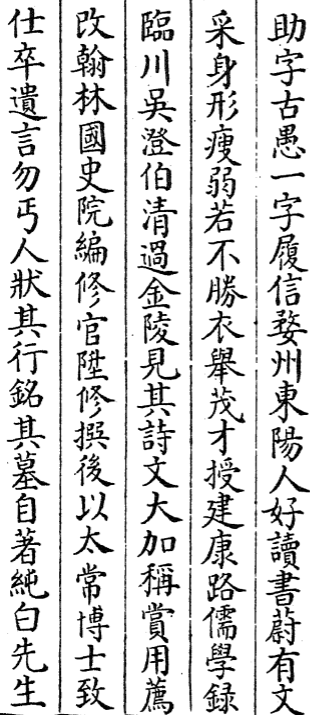 助字古愚一字履信婺州東陽人好讀書蔚有文
采身形瘦弱若不勝衣舉茂才授建康路儒學録
臨川吳澄伯清過金陵見其詩文大加稱賞用薦
改翰林國史院編修官陞修撰後以太常博士致
仕卒遺言勿丐人狀其行銘其墓自著純白先生